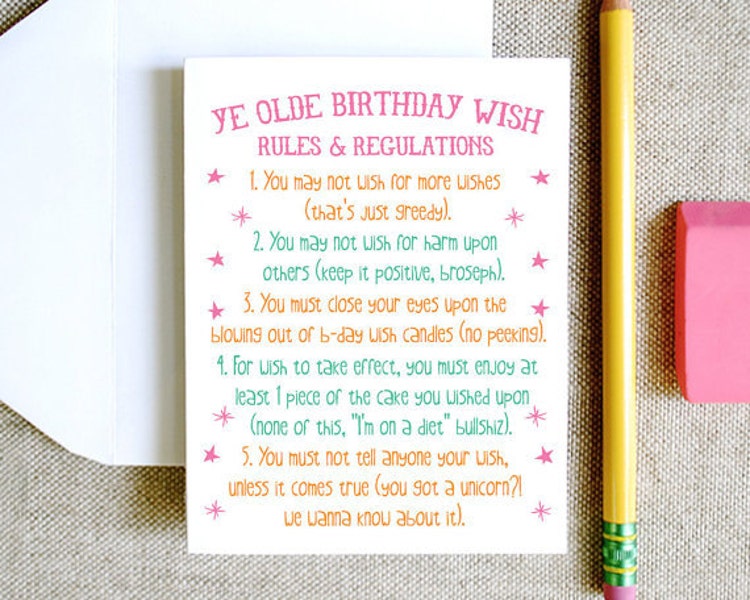 YE OLDE BIRTHDAY WISH
RULES & REGULATIONS
1. You may not wish for more wishes
(that's just greedy).
2. You may not wish for harm upon
others (keep it positive, broseph).
3. You must close your eyes upon the
blowing out of b-day wish candles (no peeking).
4. For wish to take effect, you must enjoy at
least 1 piece of the cake you wished upon
(none of this, "I'm on a diet" bullshiz).
5. You must not tell anyone your wish,
unless it comes true (you got a unicorn?!
we wanna know about it).